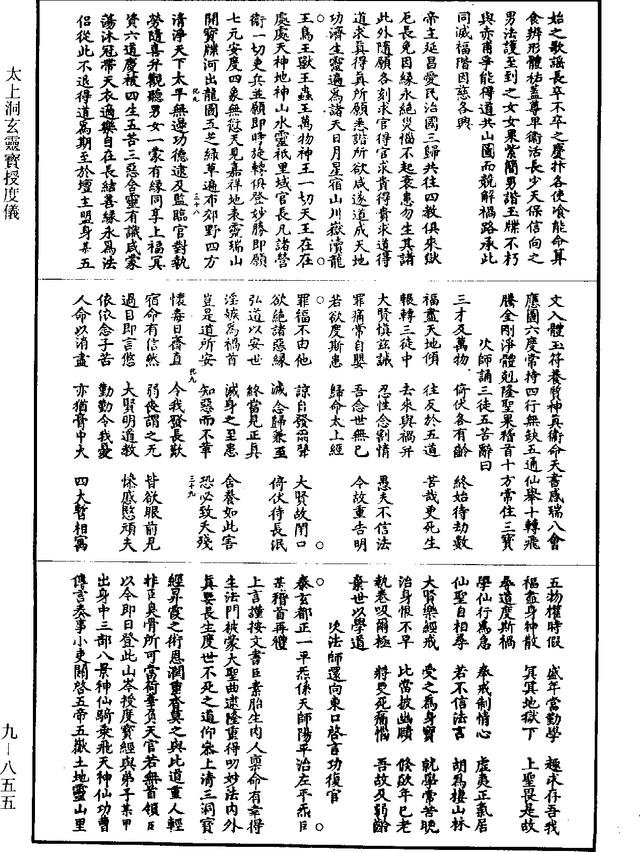 始之歌謠長卒不卒之慶拤各使飡能命算
食辨形體祐蓋尊卑衛活長少天保信向之
男法護至到之女女果紫簡男諧玉牒不朽
與赤甫爭能得道共山圖而競解禍路承此
同滅福階因慈各興
帝主延昌愛民治國三歸共往四教俱來獄
厄長免因緣永絕災惱不起衰患勿生其諸
此外隨願各刻求官得官求貴得貴求道得
道求真得真所願悉諧所欲咸遂道成天地
功濟生靈遍為諸天日月星宿山川嶽瀆龍
王鳥王獸王蟲王萬物神王一切天王在在
處處天神地神山水靈祇里域官長凡諸營
衛一切吏兵並願即時旋轉俱登妙勝即願
七元安度四象無愆天見嘉祥地表靈瑞山
開寶牒河出龍圖五芝綠草遍布郊野四方
清淨天下太平無邊功德逮及監臨官對執
勞隨喜升觀聽男女一蒙有緣同享上福冥
資六道慶被四生五苦三惡含靈有識咸蒙
蕩沐冠帶天衣逍遙自在長結善緣永為法
侶從此不退得道為期至於壇主盟身某五
文入體玉符養賢神真衛命天書感瑞八會
應圖六度常持四行無缺五通仙舉十轉飛
騰金剛淨體剋隆聖果稽首十方常住三寶
次師誦三徒五苦辭曰
三才及萬物 倚伏各有齡 終始待劫數
福盡天地傾 往反於五道 苦哉更死生
輾轉三徒中 去來與禍并 愚夫不信法
大賢慎茲誡 忍性念割情 令故重告明
罪痛常自嬰 吾念世無已
若欲度斯患 歸命太上經
○ ○
罪福不由他 諒自發爾聲 大賢故閉口
欲絕諸惡緣 滅念歸兼忘 倚伏待長泯
弘道以安世 終當見正真
淫嫉為禍首 滅身之至患 含養如此害
豈是道所安 知惡而不革 恐必致夭殘
懷毒日齋直 令我發長歎
宿命有信然 弱喪謂之無 皆欲眼前見
過日即言悠 大賢明道教 慘慼愍頑夫
依依念子苦 勤勤令我憂
人命以消盡 亦猶膏中火 四大暫相寓
五物權時假 盛年當勤學 趣求存吾我
福盡身神散 冥冥地獄下 上聖畏是故
奉道度斯禍
學仙行為急 奉戒制情心 虛夷正氣居
仙聖自相尋 若不信法言 胡為棲山林
大賢樂經戒 受之為身寶 執學常苦晚
治身恨不早 比當披幽賾 倏欻年已老
執卷叹爾極 將更死痛惱 吾故及弱齡
棄世以學道
次法師還向東口啟言功復官
○ ○
泰玄都正一平炁係天師陽平治左平炁臣
某稽首再禮
上言謹按文書臣素胎生肉人稟命有幸得
生法門被蒙大聖曲逮隆重得叨妙法內外
真要長生度世不死之道仰希上清三洞寶
經昇霞之術恩潤重脊莫之與比道重人輕
拤臣臭骨所可當荷輩負天官若無首領臣
以今即日登此山岑授度寶經與弟子某甲
出身中三部八景神仙騎乘飛天神仙功曹
傳言奏事小吏關啟五帝五嶽土地靈山里
太上洞玄靈寶授度儀
九－八五五